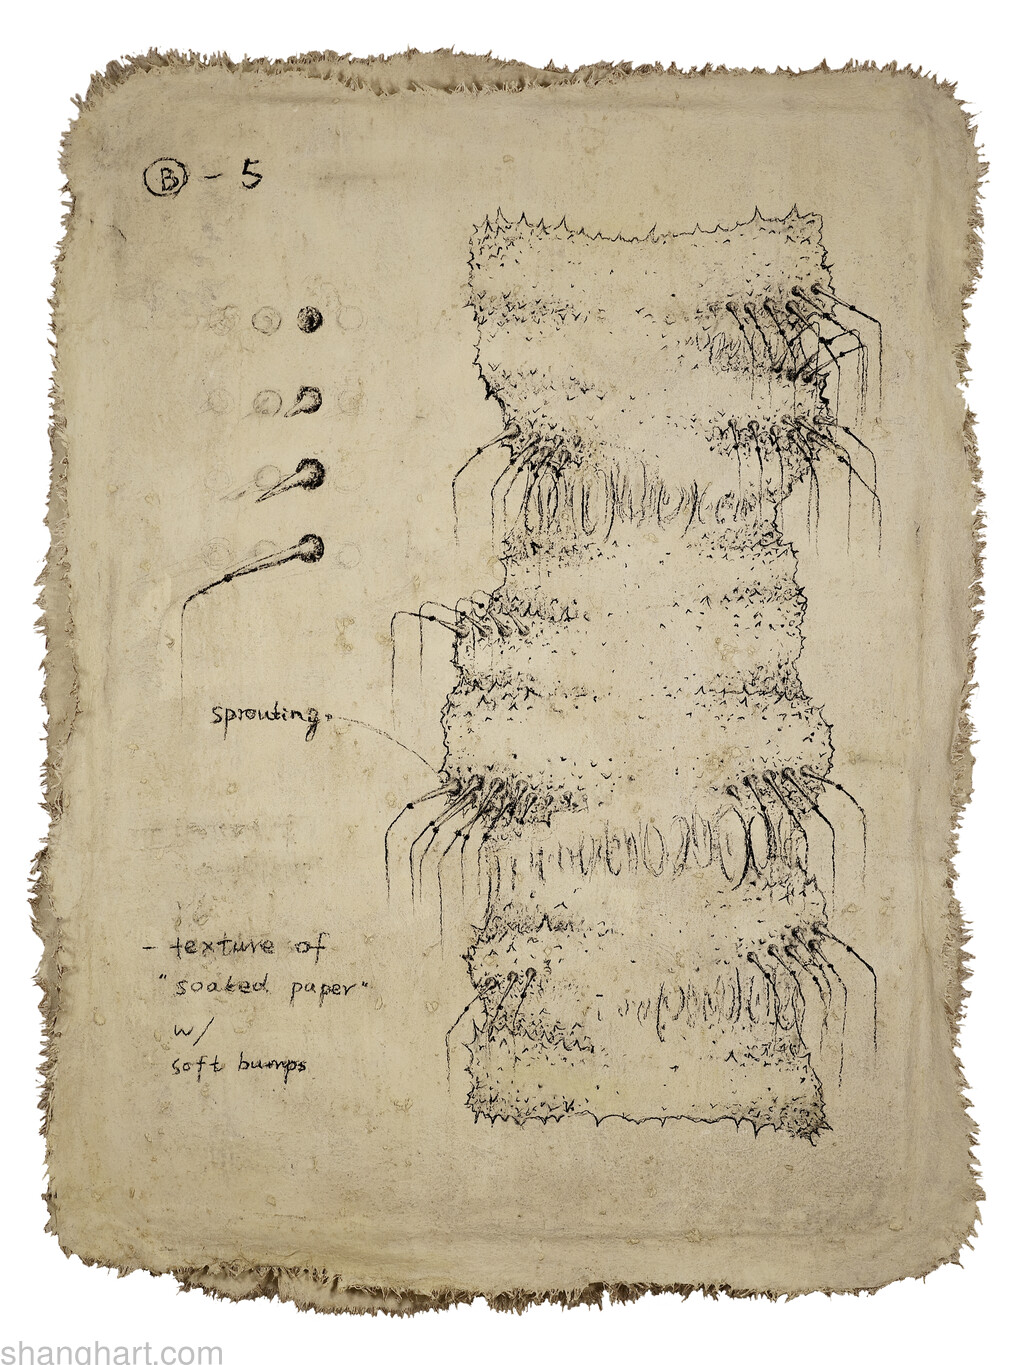 Ⓑ - 5
sprouting.
- texture of
"soaked paper"
w/
soft bumps
shanghart.com